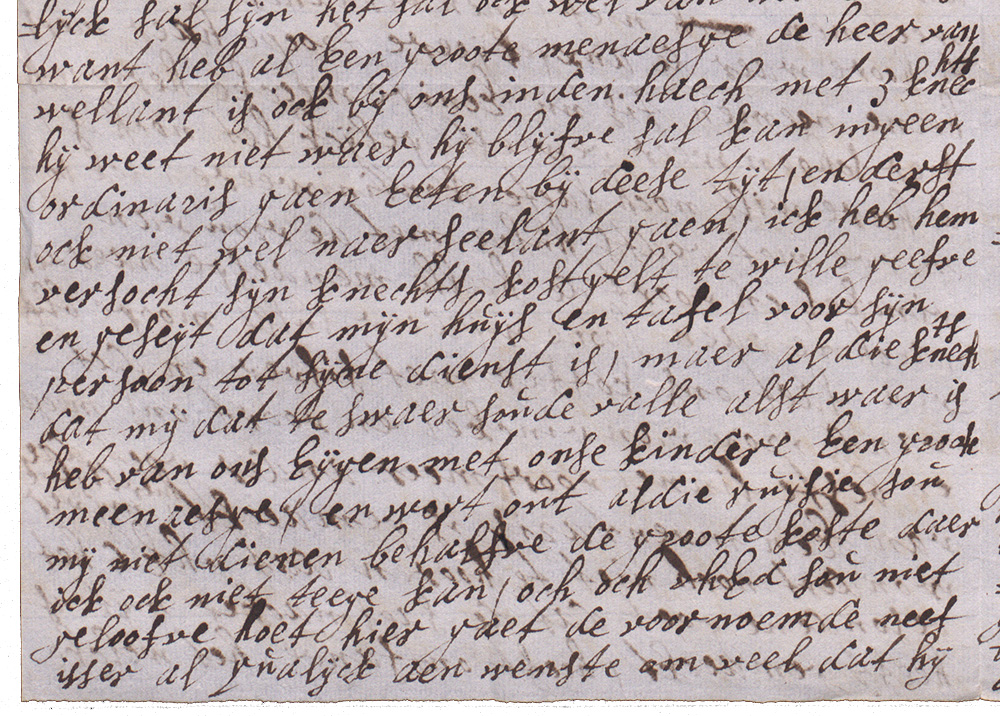 lyck sal syn het sal ock wel van
want heb al een groote menaesge de heer van
wellant is ock by ons inden haech met 3 knechts
hy weet niet waer hy blyfve sal kan ingeen
ordinaris gaen eeten by deese tyt, en derft
ock niet wel naer seelant gaen, ick heb hem
versocht syn knechts kostgelt te wille geefve
en geseyt dat myn huys en tafel voor syn
persoon tot syne dienst is, maer al die knechts
dat my dat te swaer soude valle alst waer is
heb van ons eygen met onse kindere een groote
meenaesge, en wort out aldie ruysie sou
my niet dienen behalfve de groote koste daer
ick ock niet teege kan, och och uhEd sou niet
geloofve hoet hier gaet de voornoemde neef
isser al qualyck aen wenste om veel dat hy